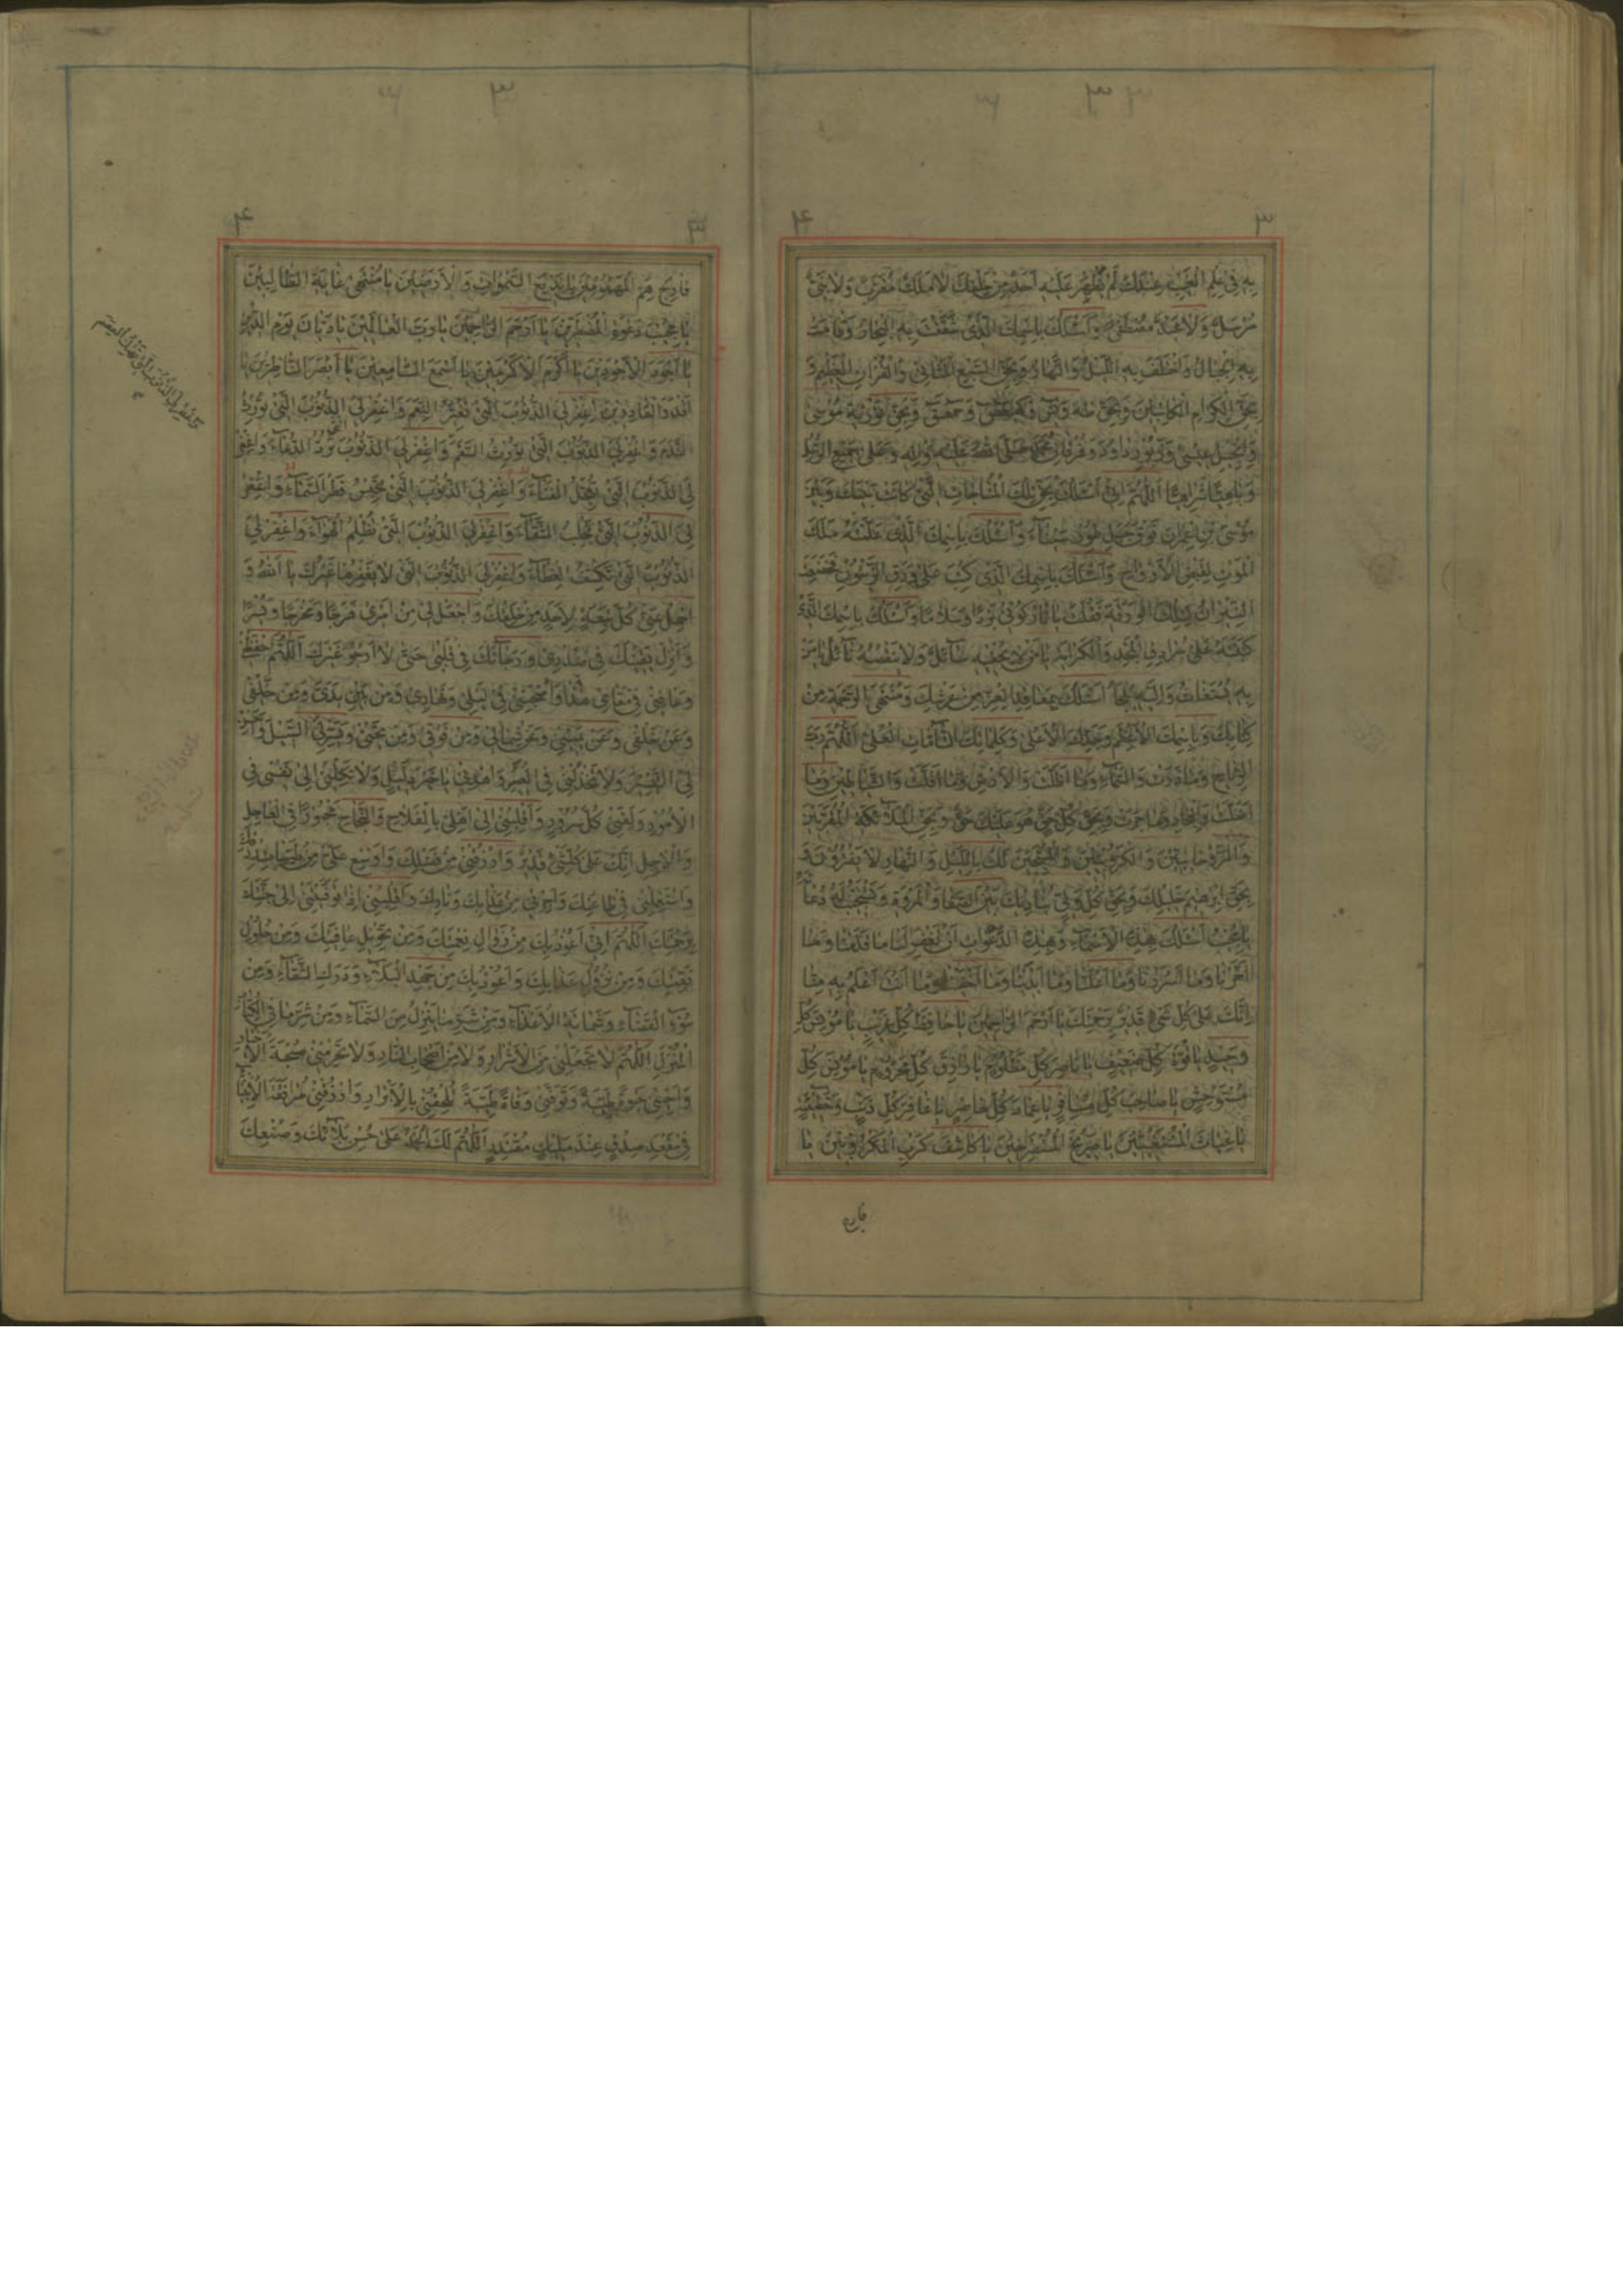 بِهِ فِي عِلْمِ الْغَيْبِ عِنْدَكَ لَمْ يَظْهَرْ عَلَيْهِ أَحَدٌ مِنْ خَلْقِكَ لَا مَلَكٌ مُقَرَّبٌ وَلَا نَبِيٌّ
مُرْسَلٌ وَلَا عَبْدٌ مُصْطَفًى وَأَسْئَلُكَ بِاسْمِكَ الَّذِي شَقَقْتَ بِهِ الْبِحَارَ وَقَامَتْ
بِهِ الْجِبَالُ وَاخْتَلَفَ بِهِ اللَّيْلُ وَالنَّهَارُ وَبِحَقِّ السَّبْعِ الْمَثَانِي وَالْقُرْآنِ الْعَظِيمِ وَ
بِحَقِّ الْكِرَامِ الْكَاتِبِينَ وَبِحَقِّ طه وَيس وَكهيعص وَحمعسق وَبِحَقِّ تَوْرٰيةِ مُوسَى
وَإِنْجِيلِ عِيسَى وَزَبُورِ دَاوُدَ وَفُرْقَانِ مُحَمَّدٍ صَلَّى اللهُ عَلَيْهِ وَآلِهِ وَعَلَى جَمِيعِ الرُّسُلِ
اَللّٰهُمَّ إِنِّي أَسْئَلُكَ بِحَقِّ تِلْكَ الْمُنَاجَاتِ الَّتِي كَانَتْ بَيْنَكَ وَبَيْنَ
مُوسَى بْنِ عِمْرَانَ فَوْقَ جَبَلِ طُورِ سَيْنَاءَ وَأَسْئَلُكَ بِاسْمِكَ الَّذِي عَلَّمْتَهُ مَلَكَ
الْمَوْتِ لِقَبْضِ الْأَرْوَاحِ وَأَسْئَلُكَ بِاسْمِكَ الَّذِي كُتِبَ عَلَى وَرَقِ الزَّيْتُونِ فَخَضَعَتِ
النِّيرَانُ لِتِلْكَ الْوَرَقَةِ فَقُلْتَ يَا نَارُ كُونِي بَرْدًا وَسَلَامًا وَأَسْئَلُكَ بِاسْمِكَ الَّذِي
كَتَبْتَهُ عَلَى سُرَادِقِ الْمَجْدِ وَالْكَرَامَةِ يَا مَنْ لَا يُحْفِيهِ سَائِلٌ وَلَا يَنْقُصُهُ نَائِلٌ يَا مَنْ
بِهِ يُسْتَغَاثُ وَإِلَيْهِ يُلْجَأُ أَسْئَلُكَ بِمَعَاقِدِ الْعِزِّ مِنْ عَرْشِكَ وَمُنْتَهَى الرَّحْمَةِ مِنْ
كِتَابِكَ وَبِاسْمِكَ الْأَعْظَمِ وَجَدِّكَ الْأَعْلَى وَكَلِمَاتِكَ التَّامَّاتِ الْعُلَى اَللّٰهُمَّ رَبَّ
الرِّيَاحِ وَمَا ذَرَتْ وَالسَّمَاءِ وَمَا أَظَلَّتْ وَالْأَرْضِ وَمَا أَقَلَّتْ وَالشَّيَاطِينِ وَمَا
أَضَلَّتْ وَالْبِحَارِ وَمَا جَرَتْ وَبِحَقِّ كُلِّ حَقٍّ هُوَ عَلَيْكَ حَقٌّ وَبِحَقِّ الْمَلَائِكَةِ الْمُقَرَّبِينَ
وَالرَّوْحَانِيِّينَ وَالْكَرُّوبِيِّينَ وَالْمُسَبِّحِينَ لَكَ بِاللَّيْلِ وَالنَّهَارِ لَا يَفْتُرُونَ وَ
بِحَقِّ إِبْرٰهِيمَ خَلِيلِكَ وَبِحَقِّ كُلِّ وَلِيٍّ يُنَادِيكَ بَيْنَ الصَّفَا وَالْمَرْوَةِ وَتَسْتَجِيبُ لَهُ دُعَاءَهُ
يَا مُجِيبُ أَسْئَلُكَ بِهٰذِهِ الْأَسْمَاءِ وَبِهٰذِهِ الدَّعَوَاتِ أَنْ تَغْفِرَ لَنَا مَا قَدَّمْنَا وَمَا
أَخَّرْنَا وَمَا أَسْرَرْنَا وَمَا أَعْلَنَّا وَمَا أَبْدَيْنَا وَمَا أَخْفَيْنَا وَمَا أَنْتَ أَعْلَمُ بِهِ مِنَّا
إِنَّكَ عَلَى كُلِّ شَيْءٍ قَدِيرٌ بِرَحْمَتِكَ يَا أَرْحَمَ الرَّاحِمِينَ يَا حَافِظَ كُلِّ غَرِيبٍ يَا مُونِسَ كُلِّ
وَحِيدٍ يَا قُوَّةَ كُلِّ ضَعِيفٍ يَا نَاصِرَ كُلِّ مَظْلُومٍ يَا رَازِقَ كُلِّ مَحْرُومٍ يَا مُونِسَ كُلِّ
مُسْتَوْحِشٍ يَا صَاحِبَ كُلِّ مُسَافِرٍ يَا عِمَادَ كُلِّ حَاضِرٍ يَا غَافِرَ كُلِّ ذَنْبٍ وَخَطِيئَةٍ
يَا غِيَاثَ الْمُسْتَغِيثِينَ يَا صَرِيخَ الْمُسْتَصْرِخِينَ يَا كَاشِفَ كَرْبِ الْمَكْرُوبِينَ يَا
فارج
فَارِجَ هَمِّ الْمَهْمُومِينَ يَا بَدِيعَ السَّمٰوَاتِ وَالْأَرَضِينَ يَا مُنْتَهَى غَايَةِ الطَّالِبِينَ
يَا مُجِيبَ دَعْوَةِ الْمُضْطَرِّينَ يَا أَرْحَمَ الرَّاحِمِينَ يَا رَبَّ الْعَالَمِينَ يَا دَيَّانَ يَوْمِ الدِّينِ
يَا أَجْوَدَ الْأَجْوَدِينَ يَا أَكْرَمَ الْأَكْرَمِينَ يَا أَسْمَعَ السَّامِعِينَ يَا أَبْصَرَ النَّاظِرِينَ يَا
أَقْدَرَ الْقَادِرِينَ اِغْفِرْ لِيَ الذُّنُوبَ الَّتِي تُغَيِّرُ النِّعَمَ وَاغْفِرْ لِيَ الذُّنُوبَ الَّتِي تُورِثُ
النَّدَمَ وَاغْفِرْ لِيَ الذُّنُوبَ الَّتِي تُورِثُ السَّقَمَ وَاغْفِرْ لِيَ الذُّنُوبَ الَّتِي تَرُدُّ الدُّعَاءَ وَاغْفِرْ
لِيَ الذُّنُوبَ الَّتِي تُعَجِّلُ الْفَنَاءَ وَاغْفِرْ لِيَ الذُّنُوبَ الَّتِي تَحْبِسُ قَطْرَ السَّمَاءِ وَاغْفِرْ
لِيَ الذُّنُوبَ الَّتِي تَجْلِبُ الشَّقَاءَ وَاغْفِرْ لِيَ الذُّنُوبَ الَّتِي تُظْلِمُ الْهَوَاءَ وَاغْفِرْ لِيَ
الذُّنُوبَ الَّتِي تَكْشِفُ الْغِطَاءَ وَاغْفِرْ لِيَ الذُّنُوبَ الَّتِي لَا يَغْفِرُهَا غَيْرُكَ يَا أَللهُ وَ
احْمِلْ عَنِّي كُلَّ تَبِعَةٍ لِأَحَدٍ مِنْ خَلْقِكَ وَاجْعَلْ لِي مِنْ أَمْرِي فَرَجًا وَمَخْرَجًا وَيُسْرًا
وَأَنْزِلْ يَقِينَكَ فِي صَدْرِي وَرَجَاءَكَ فِي قَلْبِي حَتَّى لَا أَرْجُوَ غَيْرَكَ اَللّٰهُمَّ احْفَظْنِي
وَعَافِنِي فِي مَقَامِي هٰذَا وَاصْحَبْنِي فِي لَيْلِي وَنَهَارِي وَمِنْ بَيْنِ يَدَيَّ وَمِنْ خَلْفِي
وَعَنْ يَمِينِي وَعَنْ شِمَالِي وَمِنْ فَوْقِي وَمِنْ تَحْتِي وَيَسِّرْ لِيَ السَّبِيلَ وَأَحْسِنْ
لِيَ التَّيْسِيرَ وَلَا تَخْذُلْنِي فِي الْعَسِيرِ وَاهْدِنِي يَا خَيْرَ دَلِيلٍ وَلَا تَكِلْنِي إِلَى نَفْسِي فِي
الْأُمُورِ وَلَقِّنِي كُلَّ سُرُورٍ وَاقْلِبْنِي إِلَى أَهْلِي بِالْفَلَاحِ وَالنَّجَاحِ مَحْبُورًا فِي الْعَاجِلِ
وَالْآجِلِ إِنَّكَ عَلَى كُلِّ شَيْءٍ قَدِيرٌ وَارْزُقْنِي مِنْ فَضْلِكَ وَأَوْسِعْ عَلَيَّ مِنْ طَيِّبَاتِ رِزْقِكَ
وَاسْتَعْمِلْنِي فِي طَاعَتِكَ وَأَجِرْنِي مِنْ عَذَابِكَ وَنَارِكَ وَاقْلِبْنِي إِذَا تَوَفَّيْتَنِي إِلَى جَنَّتِكَ
بِرَحْمَتِكَ اَللّٰهُمَّ إِنِّي أَعُوذُ بِكَ مِنْ زَوَالِ نِعْمَتِكَ وَمِنْ تَحْوِيلِ عَافِيَتِكَ وَمِنْ حُلُولِ
نَقِمَتِكَ وَمِنْ نُزُولِ عَذَابِكَ وَأَعُوذُ بِكَ مِنْ جَهْدِ الْبَلَاءِ وَدَرَكِ الشَّقَاءِ وَمِنْ
سُوءِ الْقَضَاءِ وَشَمَاتَةِ الْأَعْدَاءِ وَمِنْ شَرِّ مَا يَنْزِلُ مِنَ السَّمَاءِ وَمِنْ شَرِّ مَا فِي الْكِتَابِ
الْمُنْزَلِ اَللّٰهُمَّ لَا تَجْعَلْنِي مِنَ الْأَشْرَارِ وَلَا مِنْ أَصْحَابِ النَّارِ وَلَا تَحْرِمْنِي صُحْبَةَ الْأَخْيَارِ
وَأَحْيِنِي حَيٰوةً طَيِّبَةً وَتَوَفَّنِي وَفَاةً طَيِّبَةً تُلْحِقُنِي بِالْأَبْرَارِ وَارْزُقْنِي مُرَافَقَةَ الْأَنْبِيَاءِ
فِي مَقْعَدِ صِدْقٍ عِنْدَ مَلِيكٍ مُقْتَدِرٍ اَللّٰهُمَّ لَكَ الْحَمْدُ عَلَى حُسْنِ بَلَائِكَ وَصُنْعِكَ